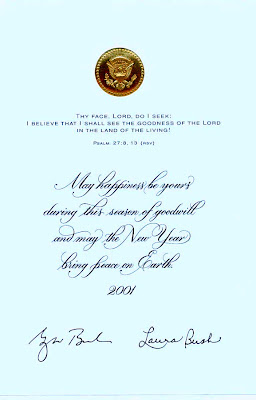 Thy face, Lord, do I seek:
I believe that I shall see the goodness of the Lord
in the land of the living!
Psalm. 27:8, 13 (RSV)
May happiness be yours
during this season of goodwill
and may the New Year
bring peace on Earth.
2001
Laura Bush